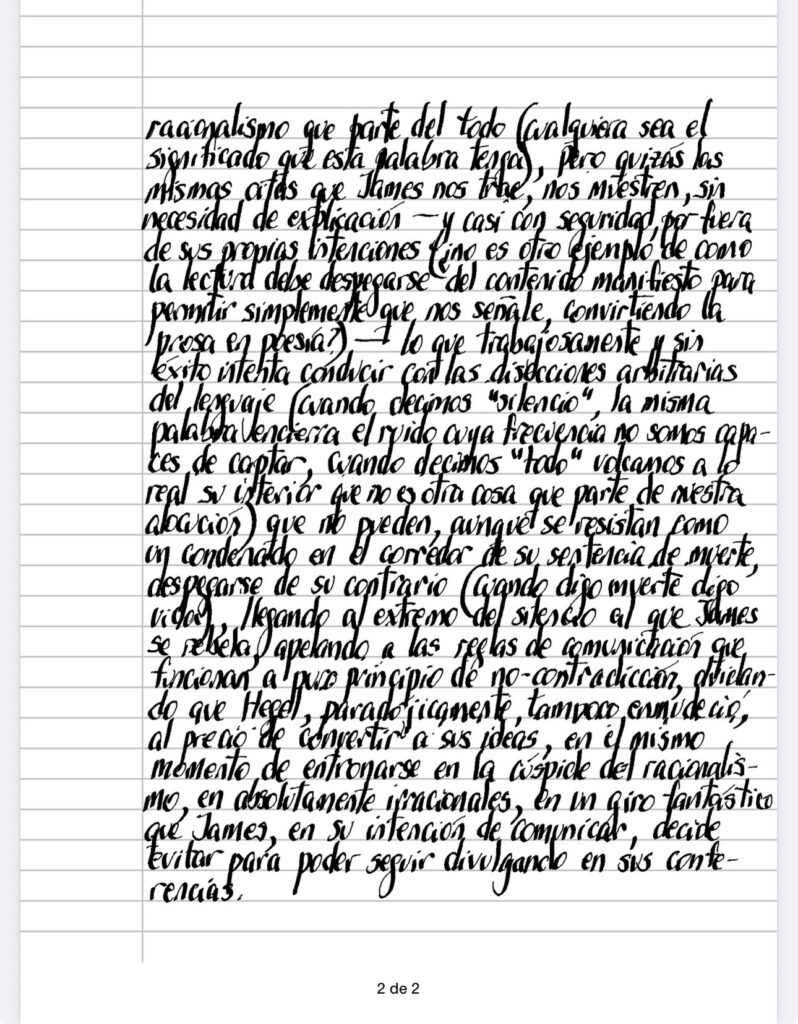 racionalismo que parte del todo (cualquiera sea el
significado que esta palabra tenga), pero quizás las
mismas citas que James nos trae, nos muestren, sin
necesidad de explicación —y casi con seguridad, por fuera
de sus propias intenciones (¿no es otro ejemplo de como
la lectura debe despegarse del contenido manifiesto para
permitir simplemente que nos señale, convirtiendo la
prosa en poesía?)— lo que trabajosamente y sin
éxito intenta conducir con las disecciones arbitrarias
del lenguaje (cuando decimos "silencio", la misma
palabra encierra el ruido cuya frecuencia no somos capa-
ces de captar, cuando decimos "todo" volcamos a lo
real su interior que no es otra cosa que parte de nuestra
alocución) que no pueden, aunque se resistan como
un condenado en el corredor de su sentencia de muerte,
despegarse de su contrario (cuando digo muerte digo
vida), llegando al extremo del silencio al que James
se rebela, apelando a las reglas de comunicación que
funcionan a puro principio de no-contradicción, olvidan-
do que Hegel, paradójicamente, tampoco enmudeció,
al precio de convertir a sus ideas, en el mismo
momento de entronarse en la cúspide del racionalis-
mo, en absolutamente irracionales, en un giro fantástico
que James, en su intención de comunicar, decide
evitar para poder seguir divulgando en sus confe-
rencias.
2 de 2